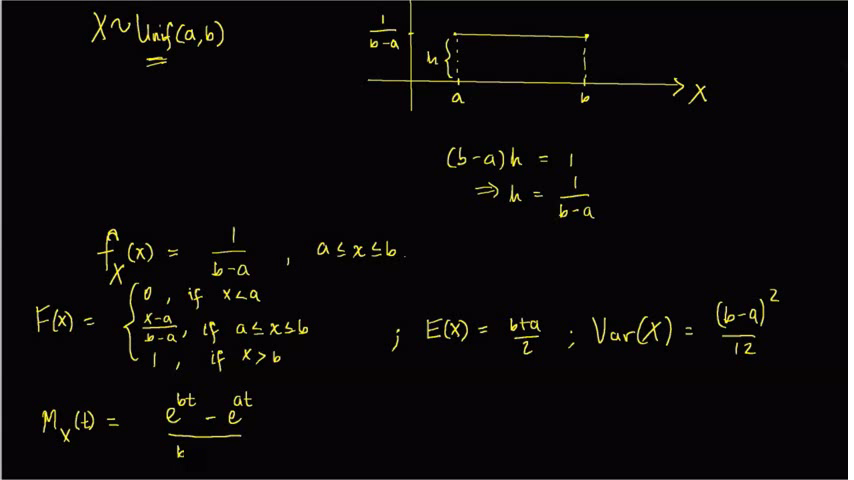 X ~ Unif(a,b)
1/(b-a)
h
a b X
(b-a)h = 1
⇒ h = 1/(b-a)
f_X(x) = 1/(b-a) , a ≤ x ≤ b.
F(x) = { 0 , if x < a
(x-a)/(b-a) , if a ≤ x ≤ b
1 , if x > b
; E(X) = (b+a)/2 ; Var(X) = (b-a)^2/12
M_X(t) = (e^{bt} - e^{at})/